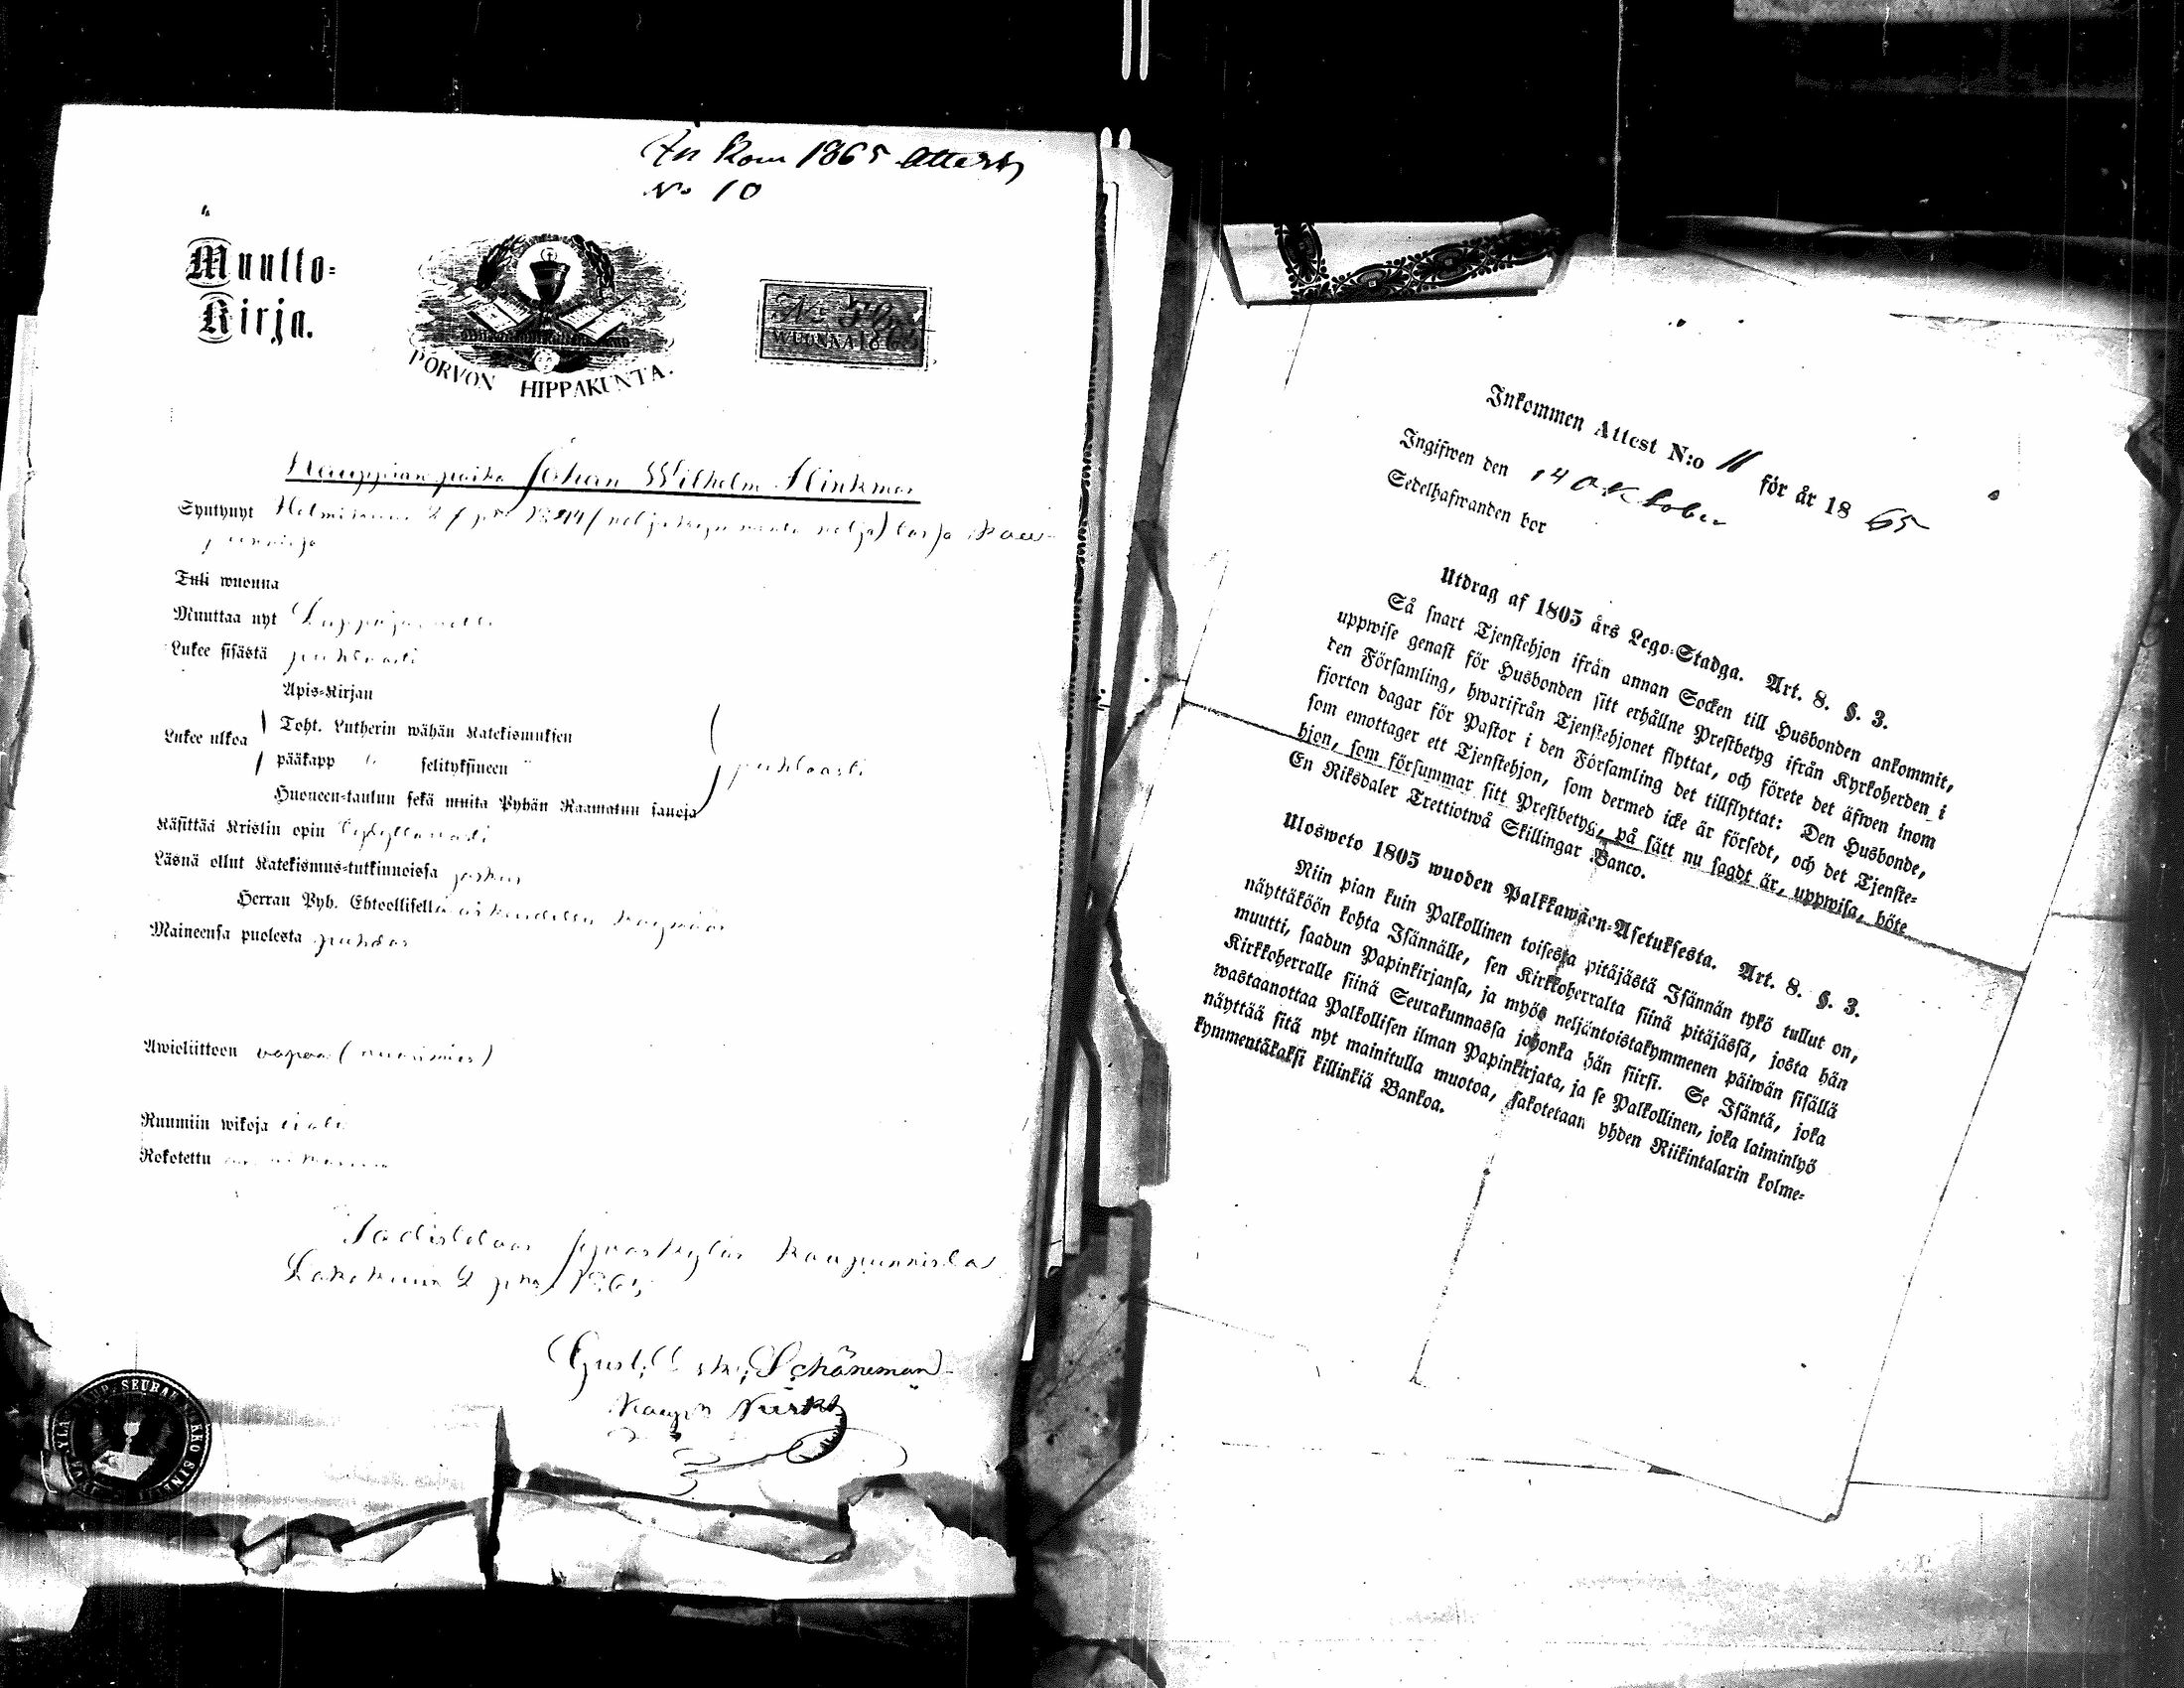 In kom 1865 attest
No 10
Muutto-
Kirja.
PORVON HIPPAKUNTA.
No
WUONNA 186
Kauppian poika Johan Wilhelm Flinkman
Syntynyt Helmikuun
Tuli wuonna
Muuttaa nyt Lappajärvelle
Lukee sisästä puhtaasti
Apis-Kirjan
Toht. Lutherin wähän Katekismuksen
Lukee ulkoa
pääkapp selityksineen puhtaasti
Huoneen-taulun sekä muita Pyhän Raamatun sanoja
Käsittää Kristin opin tyydyttävästi
Läsnä ollut Katekismus-tutkinnoissa
Herran Pyh. Ehtoollisella
Maineensa puolesta puhdas
Awioliittoon vapaa (nuorimies)
Ruumiin wikoja
Rokotettu
Todistetaan Jyväskylän kaupunnista
Lokakuun 2 p:nä 1865
Schöneman
SEURAKUNNAN KIRKKO SINETTI
Inkommen Attest N:o 11 för år 1865
Ingifwen den 14 Oktober
Sedelhafwanden bor
Utdrag af 1805 års Lego-Stadga. Art. 8. §. 3.
Så snart Tjenstehjon ifrån annan Socken till Husbonden ankommit,
uppwise genast för Husbonden sitt erhållne Prestbetyg ifrån Kyrkoherden i
den Församling, hwarifrån Tjenstehjonet flyttat, och förete det äfwen inom
fjorton dagar för Pastor i den Församling det tillflyttat: Den Husbonde,
som emottager ett Tjenstehjon, som dermed icke är försedt, och det Tjenste-
hjon, som försummar sitt Prestbetyg, på sätt nu sagdt är, uppwisa, böte
En Riksdaler Trettiotwå Skillingar Banco.
Ulosweto 1805 wuoden Palkkawäen-Asetuksesta. Art. 8. §. 3.
Niin pian kuin Palkollinen toisesta pitäjästä Isännän tykö tullut on,
näyttäköön kohta Isännälle, sen Kirkkoherralta siinä pitäjässä, josta hän
muutti, saadun Papinkirjansa, ja myös neljäntoistakymmenen päiwän sisällä
Kirkkoherralle siinä Seurakunnassa johonka hän siirsi. Se Isäntä, joka
wastaanottaa Palkollisen ilman Papinkirjata, ja se Palkollinen, joka laiminlyö
näyttää sitä nyt mainitulla muotoa, sakotetaan yhden Riikintalarin kolme-
kymmentäkaksi killinkiä Bankoa.